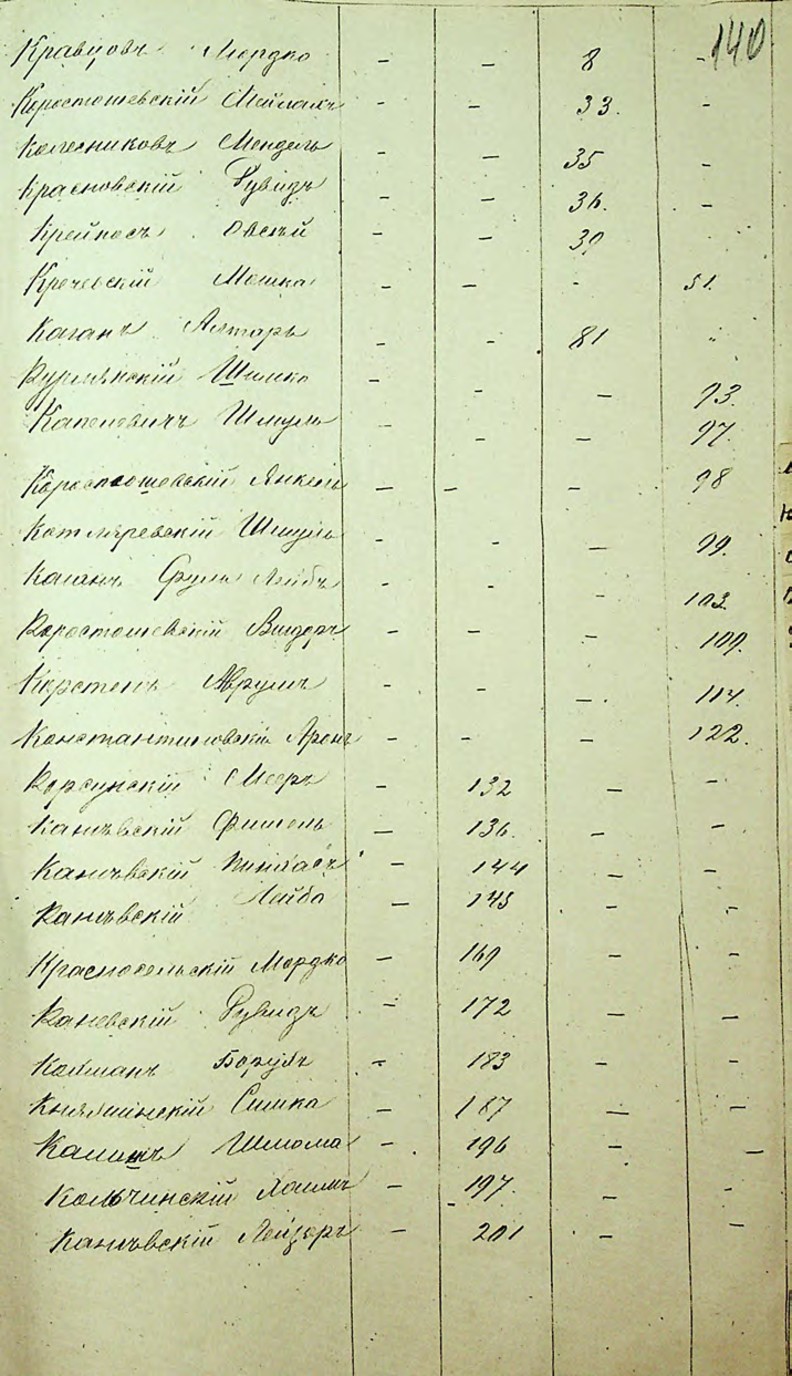 140
Кравцовъ Мордко - - 8 -
Коростошевскій Мейлахъ - - 33. -
Колесниковъ Мендель - - 35 -
Красновскій Рувидъ - - 36. -
Крейпосъ Овсѣй - - 39
Кречевскій Мошка - - - 51.
Каганъ Алтаръ - - 81 "
Шимко - - - 93.
Капелевичъ Шмуль - - - 97.
Коростошевскій Янкель - - - 98
Котляревскій Шмуль - - - 99.
Сруль Лейбъ - - - 103
Коростошевскій Вигдоръ - - - 109.
Керстенъ Аврумъ - - - 114.
Константиновскій Аронъ - - - 122.
Корсунскій Мееръ - 132 - -
Каневскій Фишель - 136. - -
Каневскій Пинхасъ - 144 - -
Каневскій Лейба - 145 - -
Красносельскій Мордко - 169 - -
Каневскій Рувидъ - 172 - -
Койманъ Борухъ - 183 - -
Симха - 187 - -
Шлиома - 196 - -
Кольчинскій Хаимъ - 197. - -
Каневскій Лейзоръ - 201 - -